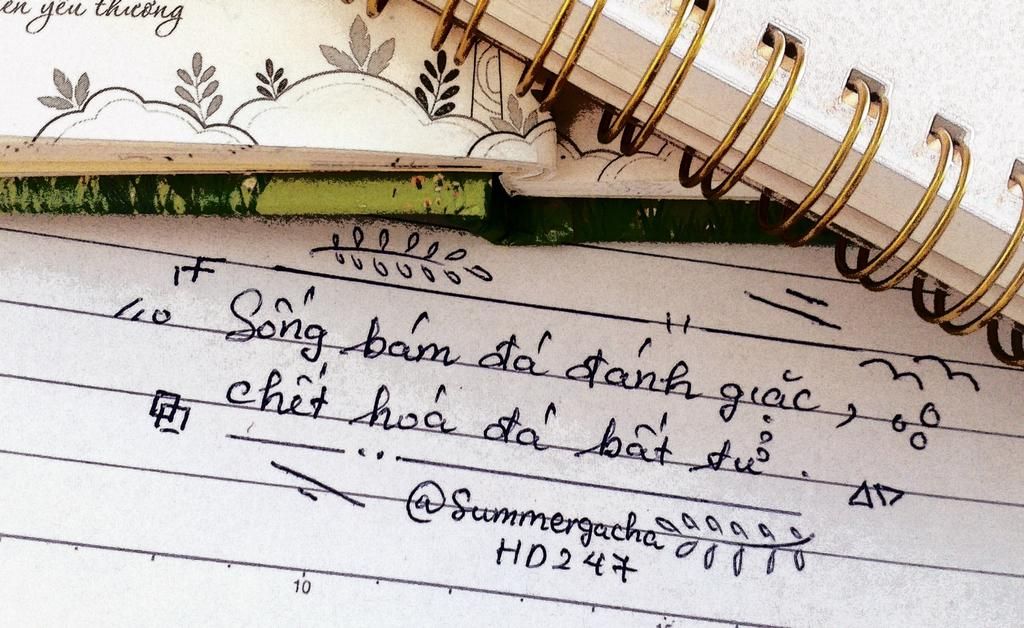 ến yêu thương
Sống bám đá đánh giặc,
chết hoá đá bất tử.
@Summergacha
HD247
10